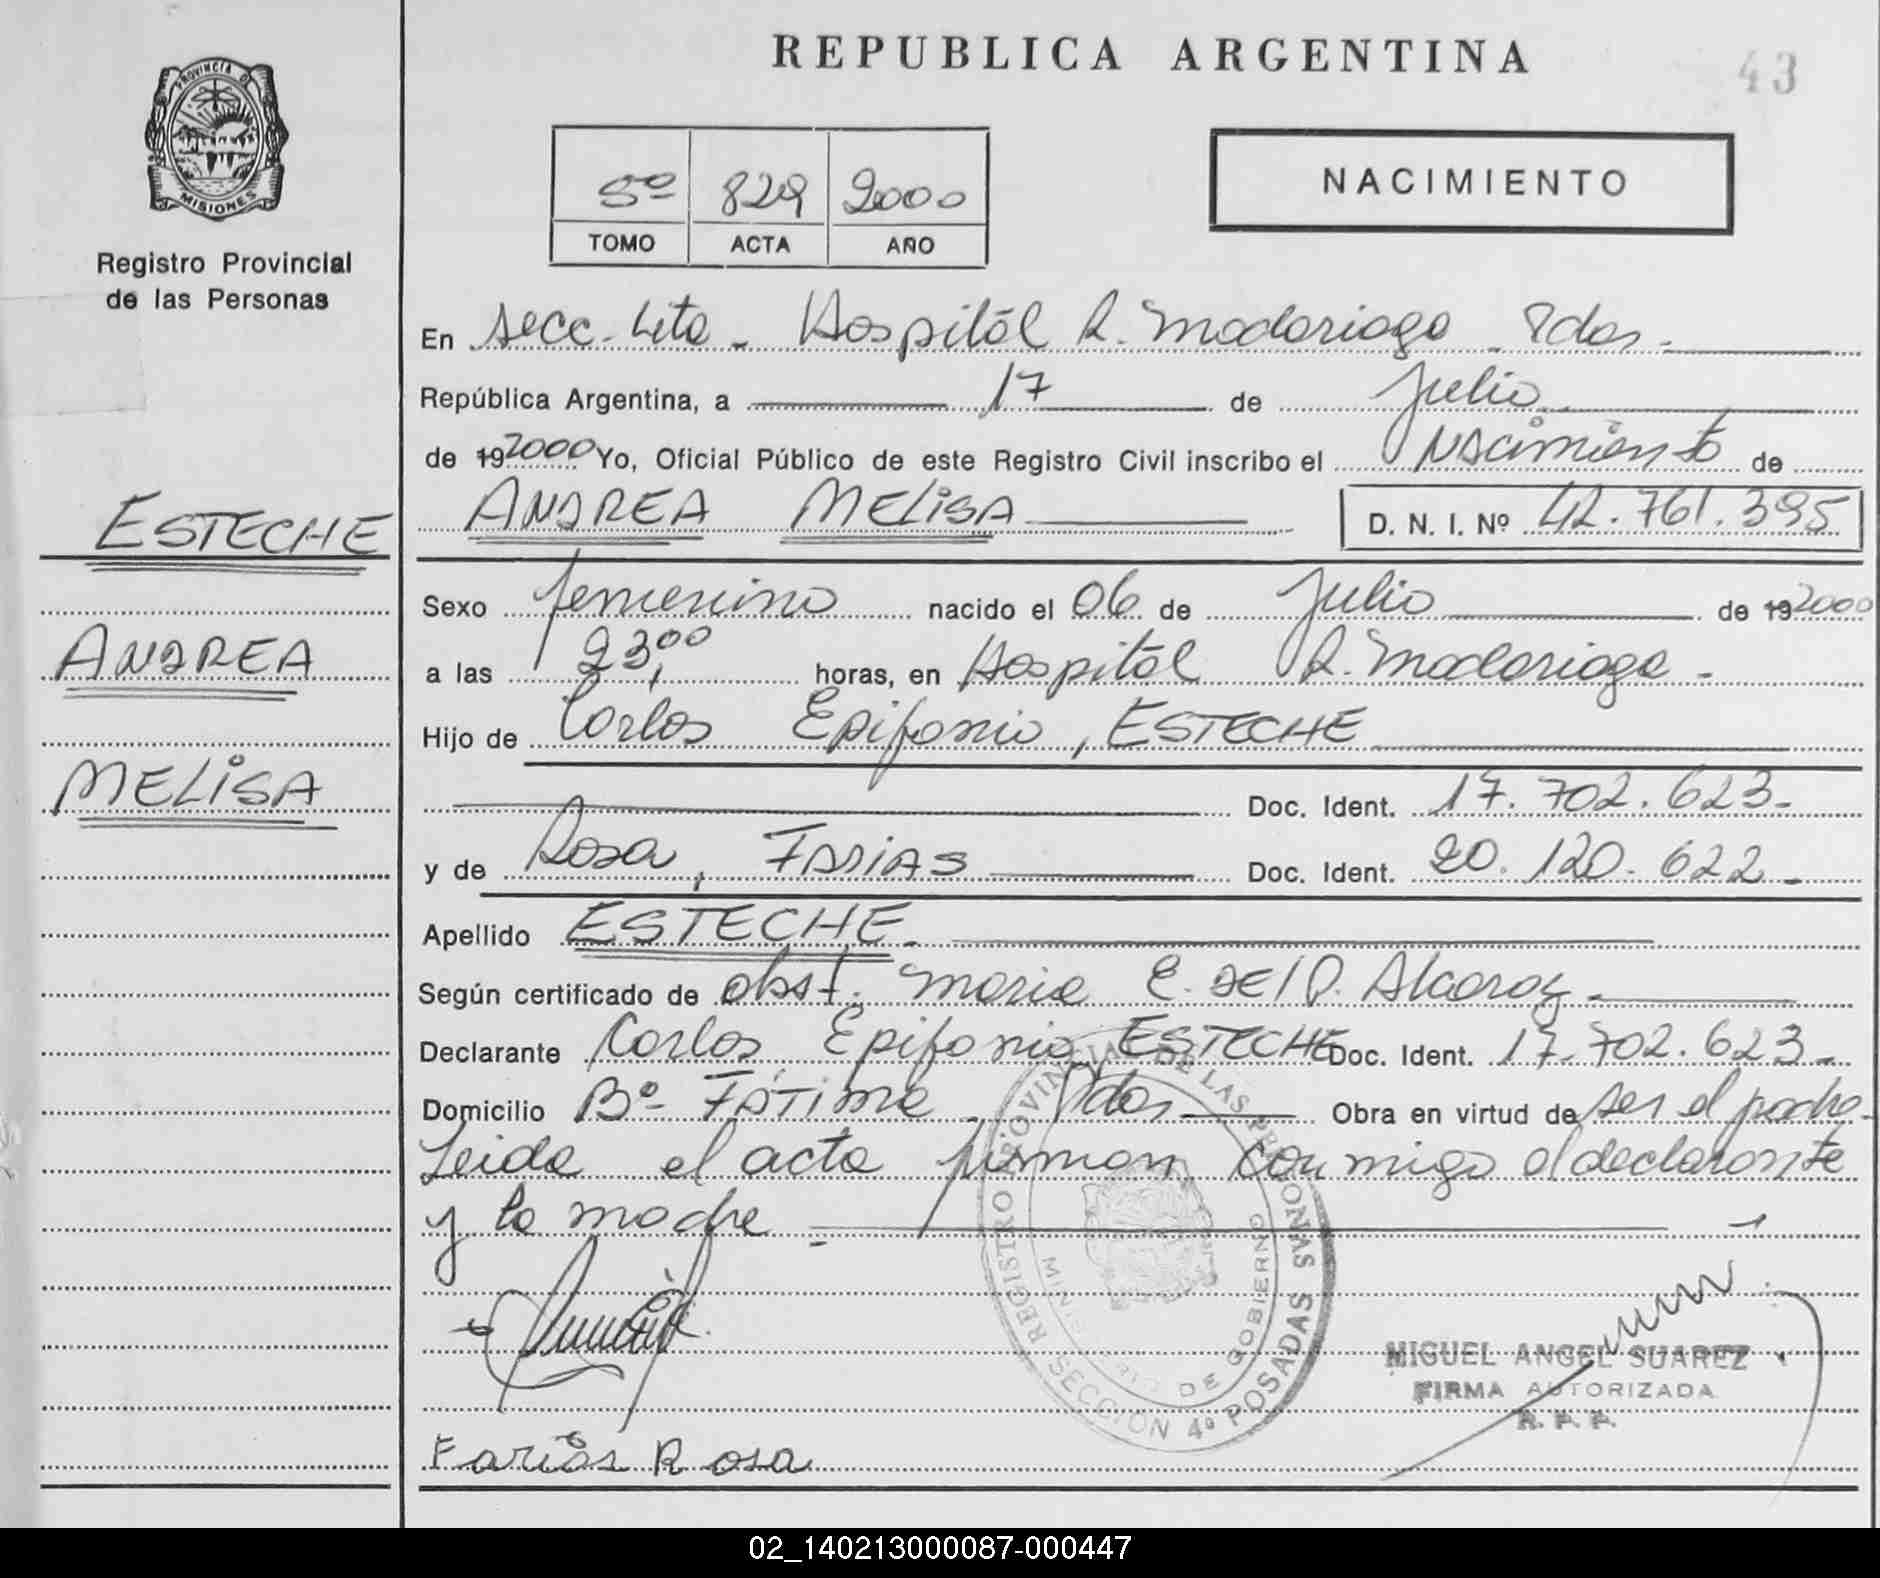 REPUBLICA ARGENTINA
43
PROVINCIA D
MISIONES
Registro Provincial
de las Personas
5º 829 2000
TOMO ACTA AÑO
NACIMIENTO
En secc. 4ta - Hospitál R. Madariaga - Pdas.
República Argentina, a 17 de Julio
de 192000 Yo, Oficial Público de este Registro Civil inscribo el Nacimiento de
ANDREA MELISA D. N. I. Nº 42.761.395
ESTECHE
ANDREA
MELISA
Sexo femenino nacido el 06 de Julio de 192000
a las 23,00 horas, en Hospitál R. Madariaga -
Hijo de Carlos Epifanio, ESTECHE
Doc. Ident. 17.702.623-
y de Rosa, FARIAS Doc. Ident. 20.120.622-
Apellido ESTECHE-
Según certificado de obst. Maria E. DEl P. Alcaraz-
Declarante Carlos Epifanio ESTECHE Doc. Ident. 17.702.623-
Domicilio Bº- FÁTIMA - Pdas Obra en virtud de ser el padre-
Leida el acta firman conmigo el declarante
y la madre -
REGISTRO PROVINCIAL DE LAS PERSONAS
SECCION 4º POSADAS
MINISTERIO DE GOBIERNO
MIGUEL ANGEL SUAREZ
FIRMA AUTORIZADA
R. P. P.
Farias Rosa
02_140213000087-000447